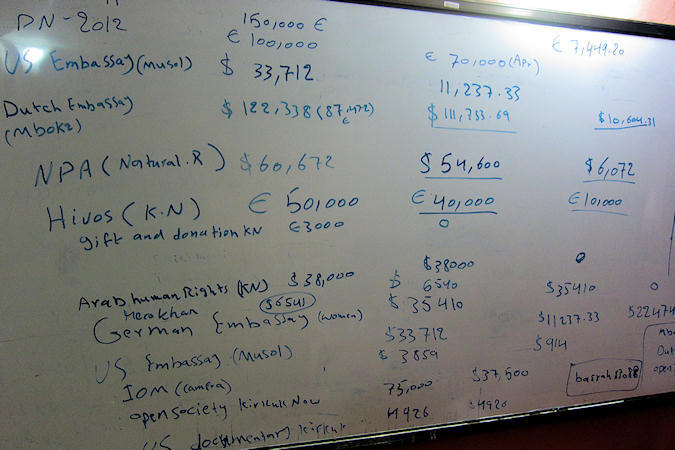 DN-2012 150,000 €
€ 100,000 € 7,449.20
US Embassay (Musol) $ 33,712 € 70,000 (Apr)
11,237.33
Dutch Embassay $ 122,338 (87,472) $ 111,733.69 $ 10,604.31
(Mbokz) €
NPA (Natural.R) $ 60,672 $ 54,600 $ 6,072
Hivos (K.N) € 50,000 € 40,000 € 10,000
gift and donation KN € 3000 0
Arab human Rights (KN) $38,000 $38000 0
Hero Khan $6541 $ 6540
German Embassay (women) $ 35410 $35410 0
US Embassay (Musol) $33712 $11237.33 $22474
IOM (camera) $ 3859 $914
open society Kirkuk Now 75,000 $37,500 basrah
US documentary Kirkuk 4926 $4926